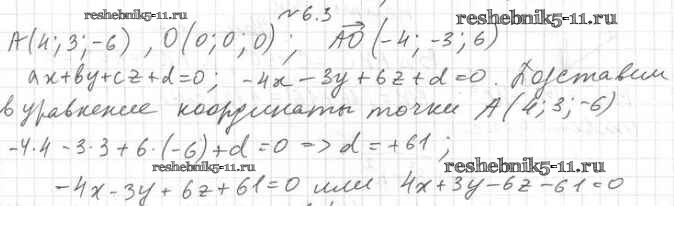 reshebnik5-11.ru
№6.3
reshebnik5-11.ru
A(4; 3; -6), O(0; 0; 0); AO(-4; -3; 6)
ax+by+cz+d=0; -4x-3y+6z+d=0. Подставим
в уравнение координаты точки A(4; 3; -6)
-4·4 -3·3+6·(-6)+d=0 => d=+61;
reshebnik5-11.ru
reshebnik5-11.ru
-4x-3y+6z+61=0 или 4x+3y-6z-61=0